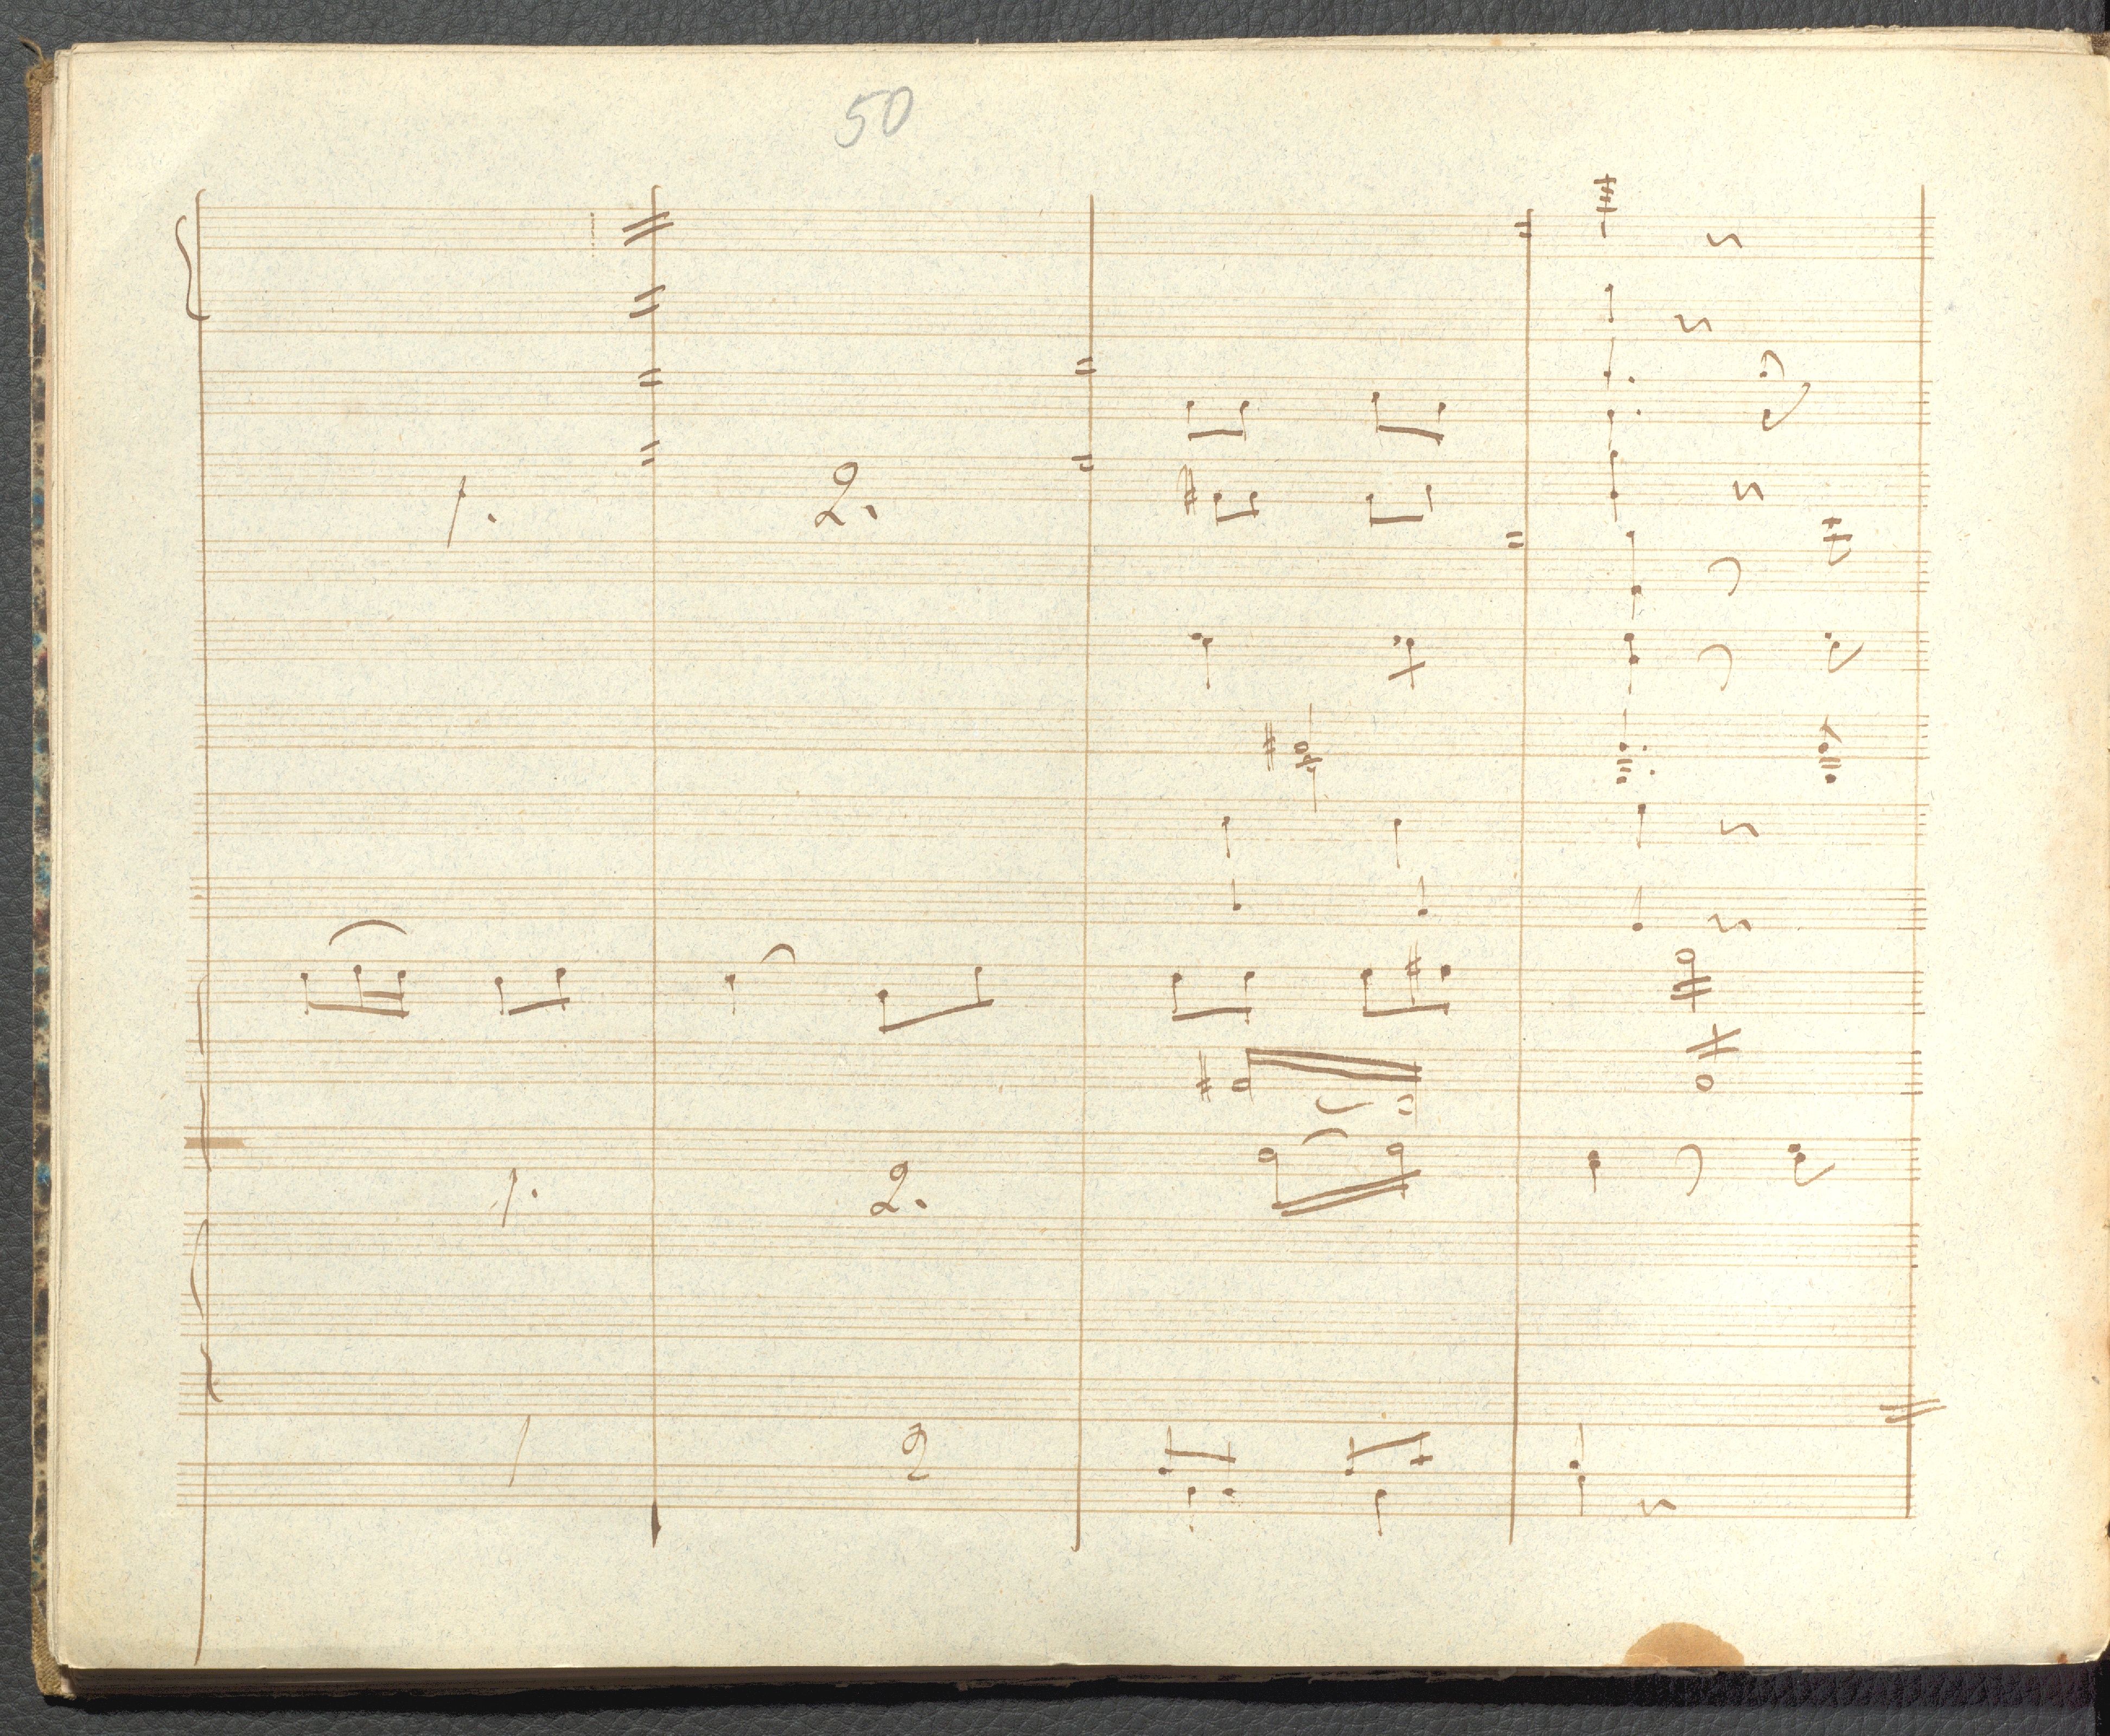 50
1. 2.
1. 2.
1 2